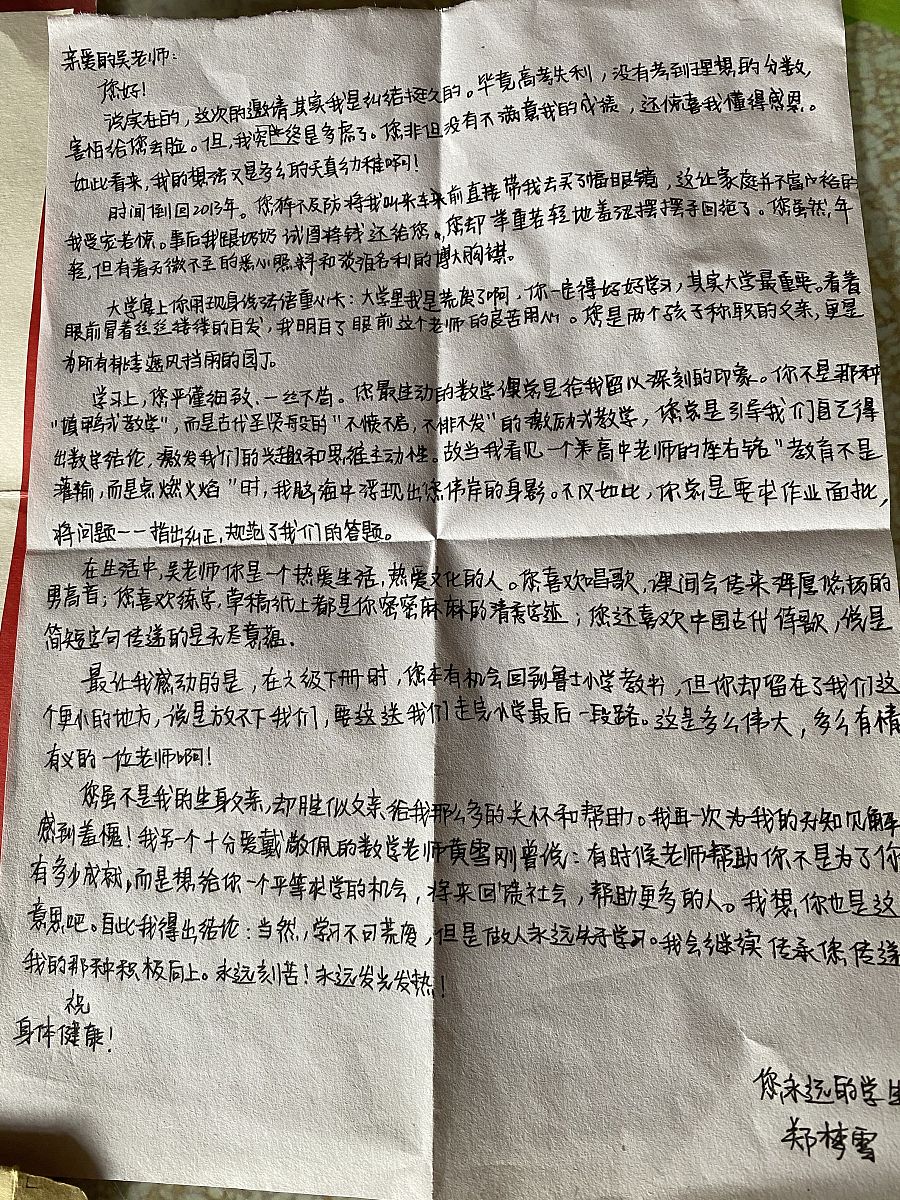 亲爱的吴老师:
您好!
说实在的,这次的邀请其实我是纠结挺久的。毕竟高考失利,没有考到理想的分数,
害怕给您丢脸。但,我究竟终是多虑了。您非但没有不满意我的成绩,还惊喜我懂得感恩。
如此看来,我的想法又是多么的天真幼稚啊!
时间倒回2013年。您猝不及防将我叫来车前直接带我去买了幅眼镜,这让家庭并不富裕的
我受宠若惊。事后我跟奶奶试图将钱还给您,您却举重若轻地羞涩摆摆手回绝了。您虽然年
轻,但有着无微不至的悉心照料和淡泊名利的博大胸襟。
大学宴上你用现身说法语重心长:大学里我是荒废了啊,你一定得好好学习,其实大学最重要。看着
眼前冒着丝丝缕缕的白发,我明白了眼前这个老师的良苦用心。您是两个孩子称职的父亲,更是
为所有桃李遮风挡雨的园丁。
学习上,您严谨细致、一丝不苟。您最生动的数学课总是给我留以深刻的印象。你不是那种
"填鸭式教学",而是古代圣贤般的"不愤不启,不悱不发"的激励式教学,您总是引导我们自己得
出数学结论,激发我们的兴趣和思维主动性。故当我看见一个来高中老师的座右铭"教育不是
灌输,而是点燃火焰"时,我脑海中浮现出您伟岸的身影。不仅如此,你总是要求作业面批,
将问题一一指出纠正,规范了我们的答题。
在生活中,吴老师你是一个热爱生活,热爱文化的人。您喜欢唱歌,课间会传来浑厚悠扬的
男高音;您喜欢练字,草稿纸上都是你密密麻麻的清秀字迹;您还喜欢中国古代诗歌,说是
简短字句传递的是无尽意蕴.
最让我感动的是,在六级下册时,您本有机会回到鲁士小学教书,但你却留在了我们这
个更小的地方,说是放不下我们,要这送我们走完小学最后一段路。这是多么伟大,多么有情
有义的一位老师啊!
您虽不是我的生身父亲,却胜似父亲给我那么多的关怀和帮助。我再一次为我的幼知见解
感到羞愧!我另一个十分爱戴敬佩的数学老师黄雪刚曾说:有时候老师帮助你不是为了你
有多少成就,而是想给你一个平等求学的机会,将来回馈社会,帮助更多的人。我想你也是这
意思吧。自此我得出结论:当然,学习不可荒废,但是做人永远先于学习。我会继续传承您传递
我的那种积极向上。永远刻苦!永远发光发热!
祝
身体健康!
您永远的学生
郑梦雪